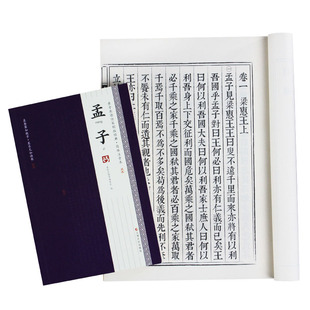 卷一　梁惠王上
孟子見梁惠王王曰叟不遠千里而來亦將有以利
吾國乎孟子對曰王何必曰利亦有仁義而已矣王
曰何以利吾國大夫曰何以利吾家士庶人曰何以
利吾身上下交征利而國危矣萬乘之國弒其君者
必千乘之家千乘之國弒其君者必百乘之家萬取
千焉千取百焉不為不多矣苟為後義而先利不奪
不饜未有仁而遺其親
王亦曰
立
孟子